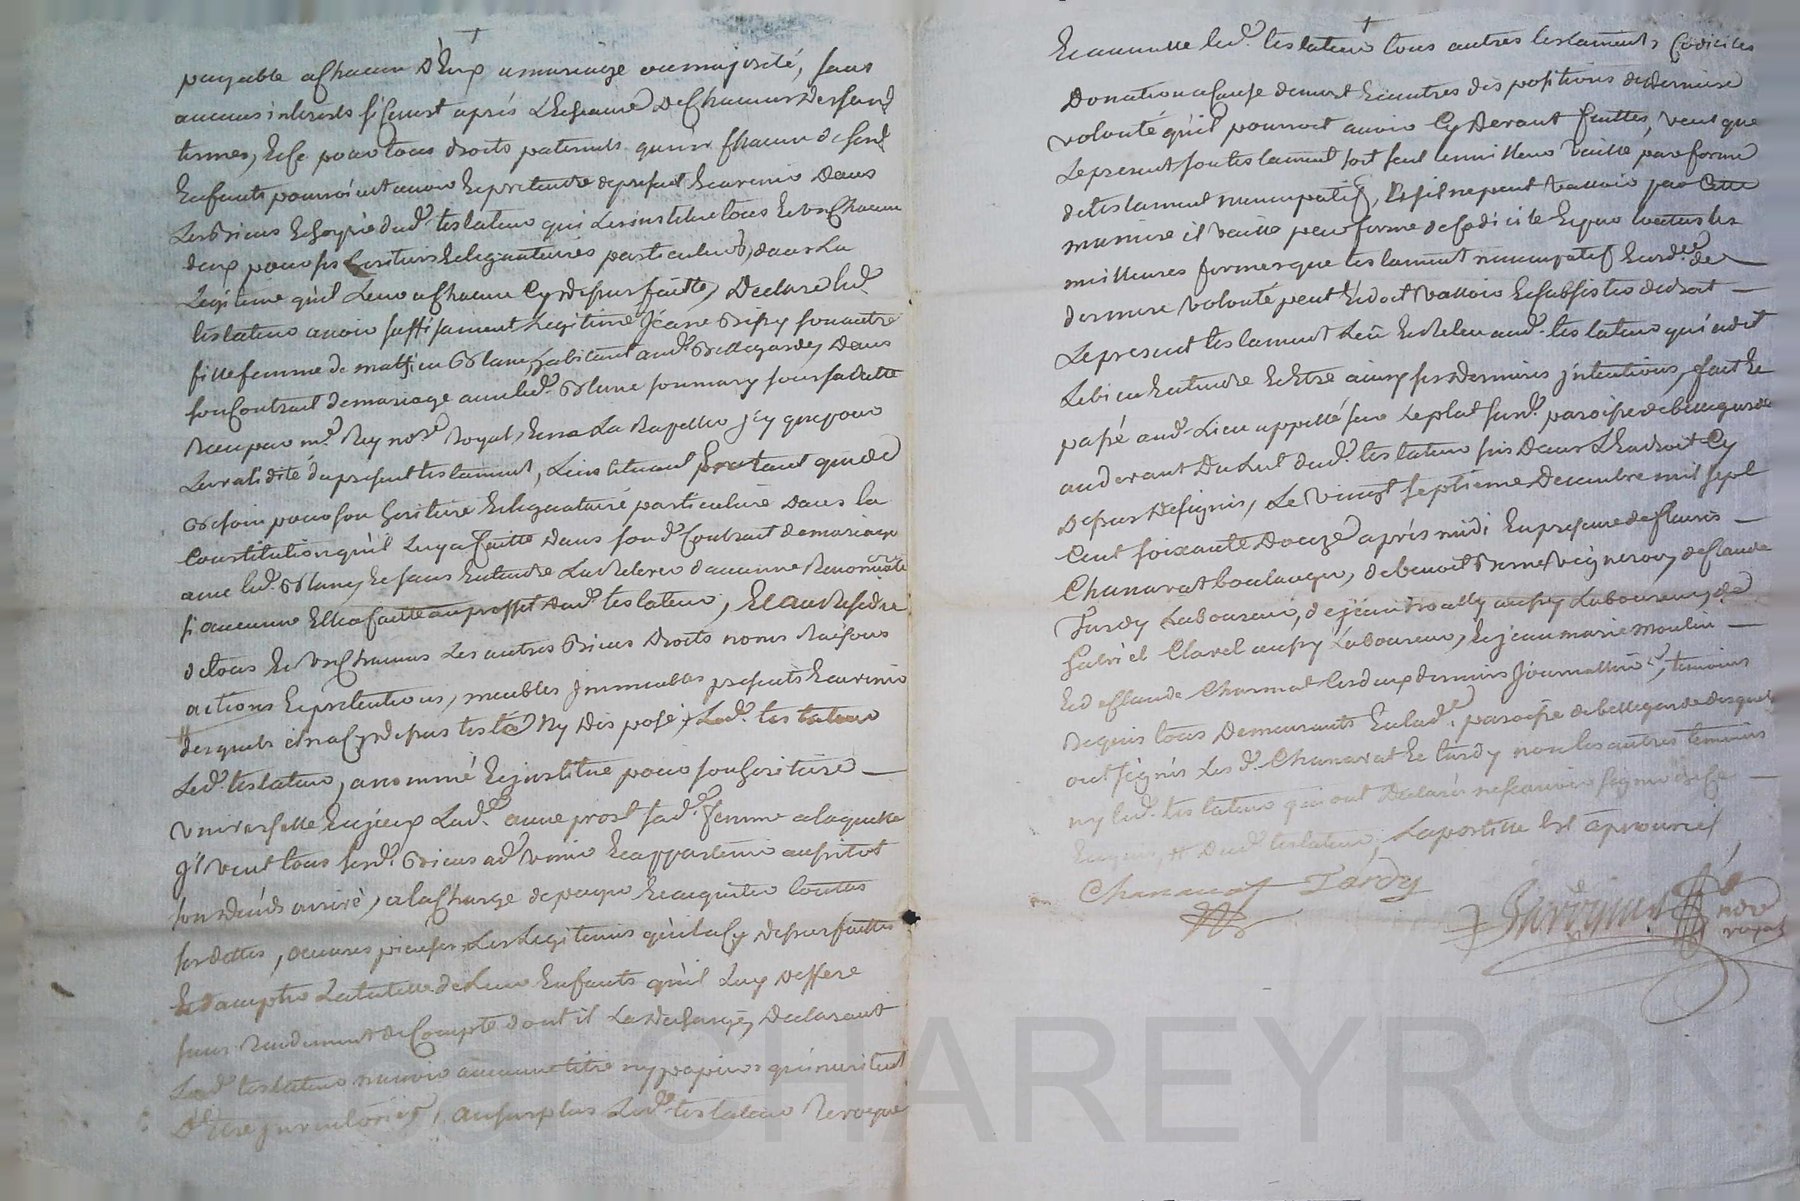 payable a chacun d'eux a mariage ou majorité, sans
aucuns interests si ce n'est après l'echeance de chacun desd.
termes, et ce pour tous droits paternels qu'un chacun de sesd.
Enfants pourroient avoir et pretendre de present et avenir dans
Les biens et hoyrie dud. testateur qui les institue tous et un chacun
deux pour ses heritiers et legataires particuliers, dans La
Legitime qu'il Leur a chacun cy depus faitte, Declare led.
testateur avoir suffisament Legitimé son autre
fille femme de mathieu habitant aud. Bellegarde, Dans
son Contrat de mariage avec led. son mary sous sa datte
Receu par me. Rey nore. Royal, Et icy que pour
La validité du present testament, L'instituant pourtant que de
Besoin pour son heritiere et legataire particuliere dans la
Constitution qu'il Luy a faitte dans sond. Contrat de mariage
avec led. et sans Entendre La relever d'aucune Renonciation
si aucunne Elle a faitte au proffit dud. testateur, Et au Residu
de tous et un chacuns Les autres Biens Droits noms Raisons
actions et pretentions, meubles immeubles presents et avenir
desquels il n'a cy depus testé Ny disposé, Led. testateur
Led. testateur, a nommé et institue pour son heritiere
universelle Lad. anne prost sad. femme a laquelle
il veut tous sesd. Biens venir et appartenir aussitot
son deceds arrivé, a la charge de payer et acquitter touttes
ses dettes, oeuvres pieuses, Les Legitimes qu'il a cy depus faittes
Et d'accepter La tutelle de Leurs Enfants qu'il Luy deffere
sans Rendement de Compte dont il La decharge, Declarant
Led. testateur n'avoir aucunne titre ny papiers qui meritent
D'Etre inventoriés, au surplus Led. testateur Revoque
Et annulle led. testateur tous autres testaments, Codiciles
Donation a cause de mort et autres dispositions de derniere
volonté qu'il pourroit avoir cy devant faittes, veut que
Le present son testament soit seul et meilleur vaille par forme
de testament nuncupatif, Et s'il ne peut valloir par Cette
maniere il vaille par forme de codicile et par touttes les
meilleures formes que testament nuncupatif de
derniere volonté peut et doit valloir et subsister de droit
Le present testament Leu et releu aud. testateur qui a dit
Le bien Entendre et Etre ainsy ses dernieres intentions, fait et
passé aud. Lieu appellé sur Le plat susd. paroisse de bellegarde
au devant Du Lit dud. testateur sis dans L'Endroit cy
depus designé, Le vingt septieme Decembre mil sept
Cent soixante Douze après midi En presence de
Chanavat boulanger, de benoit vigneron, de Claude
Tardy Laboureur, de jean aussy Laboureur, de
Gabriel Clavel aussy Laboureur, Et jean marie moulin
Et de Claude Charmat les deux derniers journalliers, temoins
Requis tous Demeurants En lad. paroisse de bellegarde desquels
ont signés Les d. Chanavat et tardy non les autres temoins
ny led. testateur qui ont declaré ne sçavoir signer de ce
Enquis, dud. testateur, La postille Est aprouvée
Chanavat Tardy
nore
royal